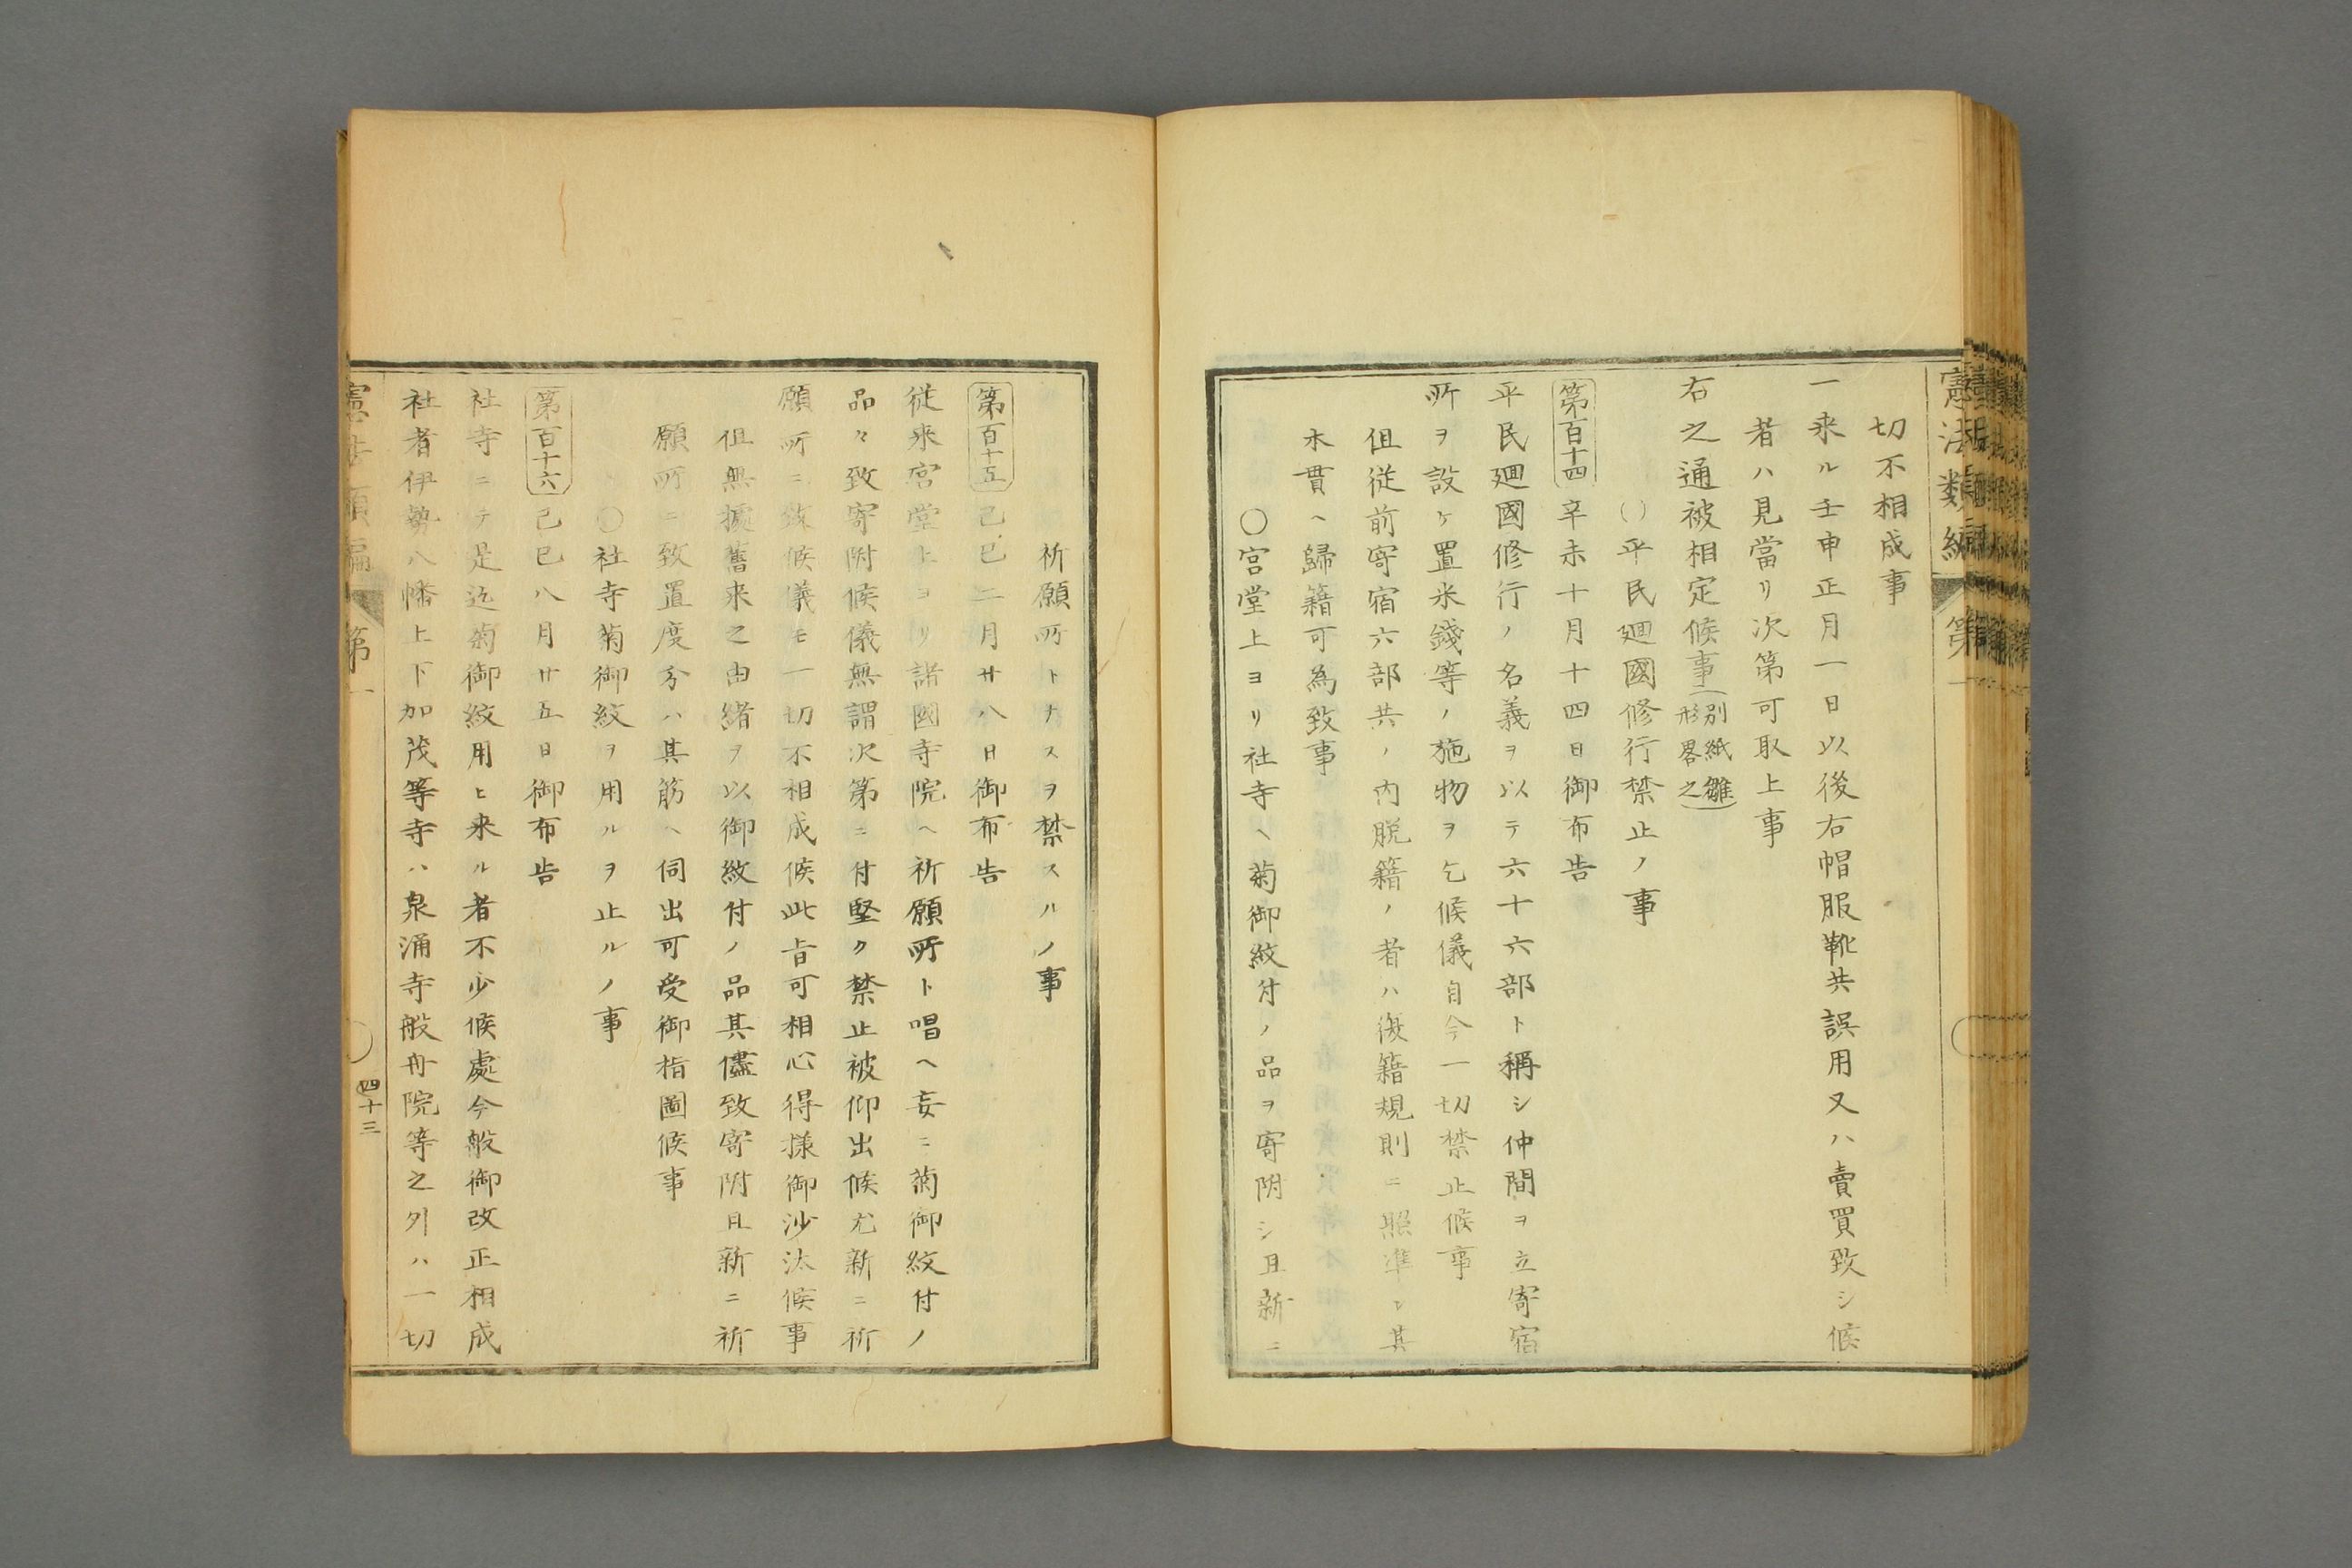 憲法類編 第一
切不相成事
一来ル壬申正月一日以後右帽服靴共誤用又ハ賣買致シ候
者ハ見當リ次第可取上事
右之通被相定候事(別紙雛形畧之)
〇平民廻國修行禁止ノ事
第百十四 辛未十月十四日御布告
平民廻國修行ノ名義ヲ以テ六十六部ト稱シ仲間ヲ立寄宿
所ヲ設ケ置米錢等ノ施物ヲ乞候儀自今一切禁止候事
但従前寄宿六部共ノ内脱籍ノ者ハ復籍規則ニ照準シ其
本貫ヘ歸籍可為致事
〇宮堂上ヨリ社寺ヘ菊御紋付ノ品ヲ寄附シ且新ニ
祈願所トナスヲ禁スルノ事
第百十五 己巳二月廿八日御布告
従来宮堂上ヨリ諸國寺院ヘ祈願所ト唱ヘ妄ニ菊御紋付ノ
品々致寄附候儀無謂次第ニ付堅ク禁止被仰出候尤新ニ祈
願所ニ致候儀モ一切不相成候此旨可相心得様御沙汰候事
但無據舊来之由緒ヲ以御紋付ノ品其儘致寄附且新ニ祈
願所ニ致置度分ハ其筋ヘ伺出可受御指圖候事
〇社寺菊御紋ヲ用ルヲ止ルノ事
第百十六 己巳八月廿五日御布告
社寺ニテ是迄菊御紋用ヒ来ル者不少候處今般御改正相成
社者伊勢八幡上下加茂等寺ハ泉涌寺般舟院等之外ハ一切
憲法類編 第一 四十三